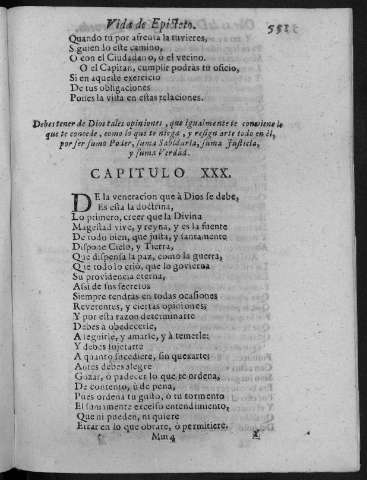 Vida de Epicteto. 552
Quando tù por afrenta la tuvieres,
Siguen lo este camino,
O con el Ciudadano, o el vecino.
O el Capitan, cumplir podràs tu oficio,
Si en aqueste exercicio
De tus obligaciones
Pones la vista en estas relaciones.
Debes tener de Dios tales opiniones, que igualmente te conviene lo
que te concede, como lo que te niega, y resignarte todo en èl,
por ser sumo Poder, suma Sabiduria, suma Justicia,
y suma Verdad.
CAPITULO XXX.
DE la veneracion que à Dios se debe,
Es esta la doctrina,
Lo primero, creer que la Divina
Magestad vive, y reyna, y es la fuente
De todo bien, que justa, y santamente
Dispone Cielo, y Tierra,
Que dispensa la paz, como la guerra,
Que todo lo criò, que lo govierna
Su providencia eterna,
Assi de sus secretos
Siempre tendràs en todas ocasiones
Reverentes, y ciertas opiniones;
Y por esta razon determinarte
Debes à obedecerle,
A seguirle, y amarle, y à temerle;
Y debes sujetarte
A quanto sucediere, sin quexarte;
Antes debes alegre
Gozar, ò padecer lo que te ordena,
De contento, ù de pena,
Pues ordena tu gusto, ò tu tormento
El sumamente excelso entendimiento,
Que ni pueden, ni quiere
Errar en lo que obrare, ò permitiere.
Mm 4